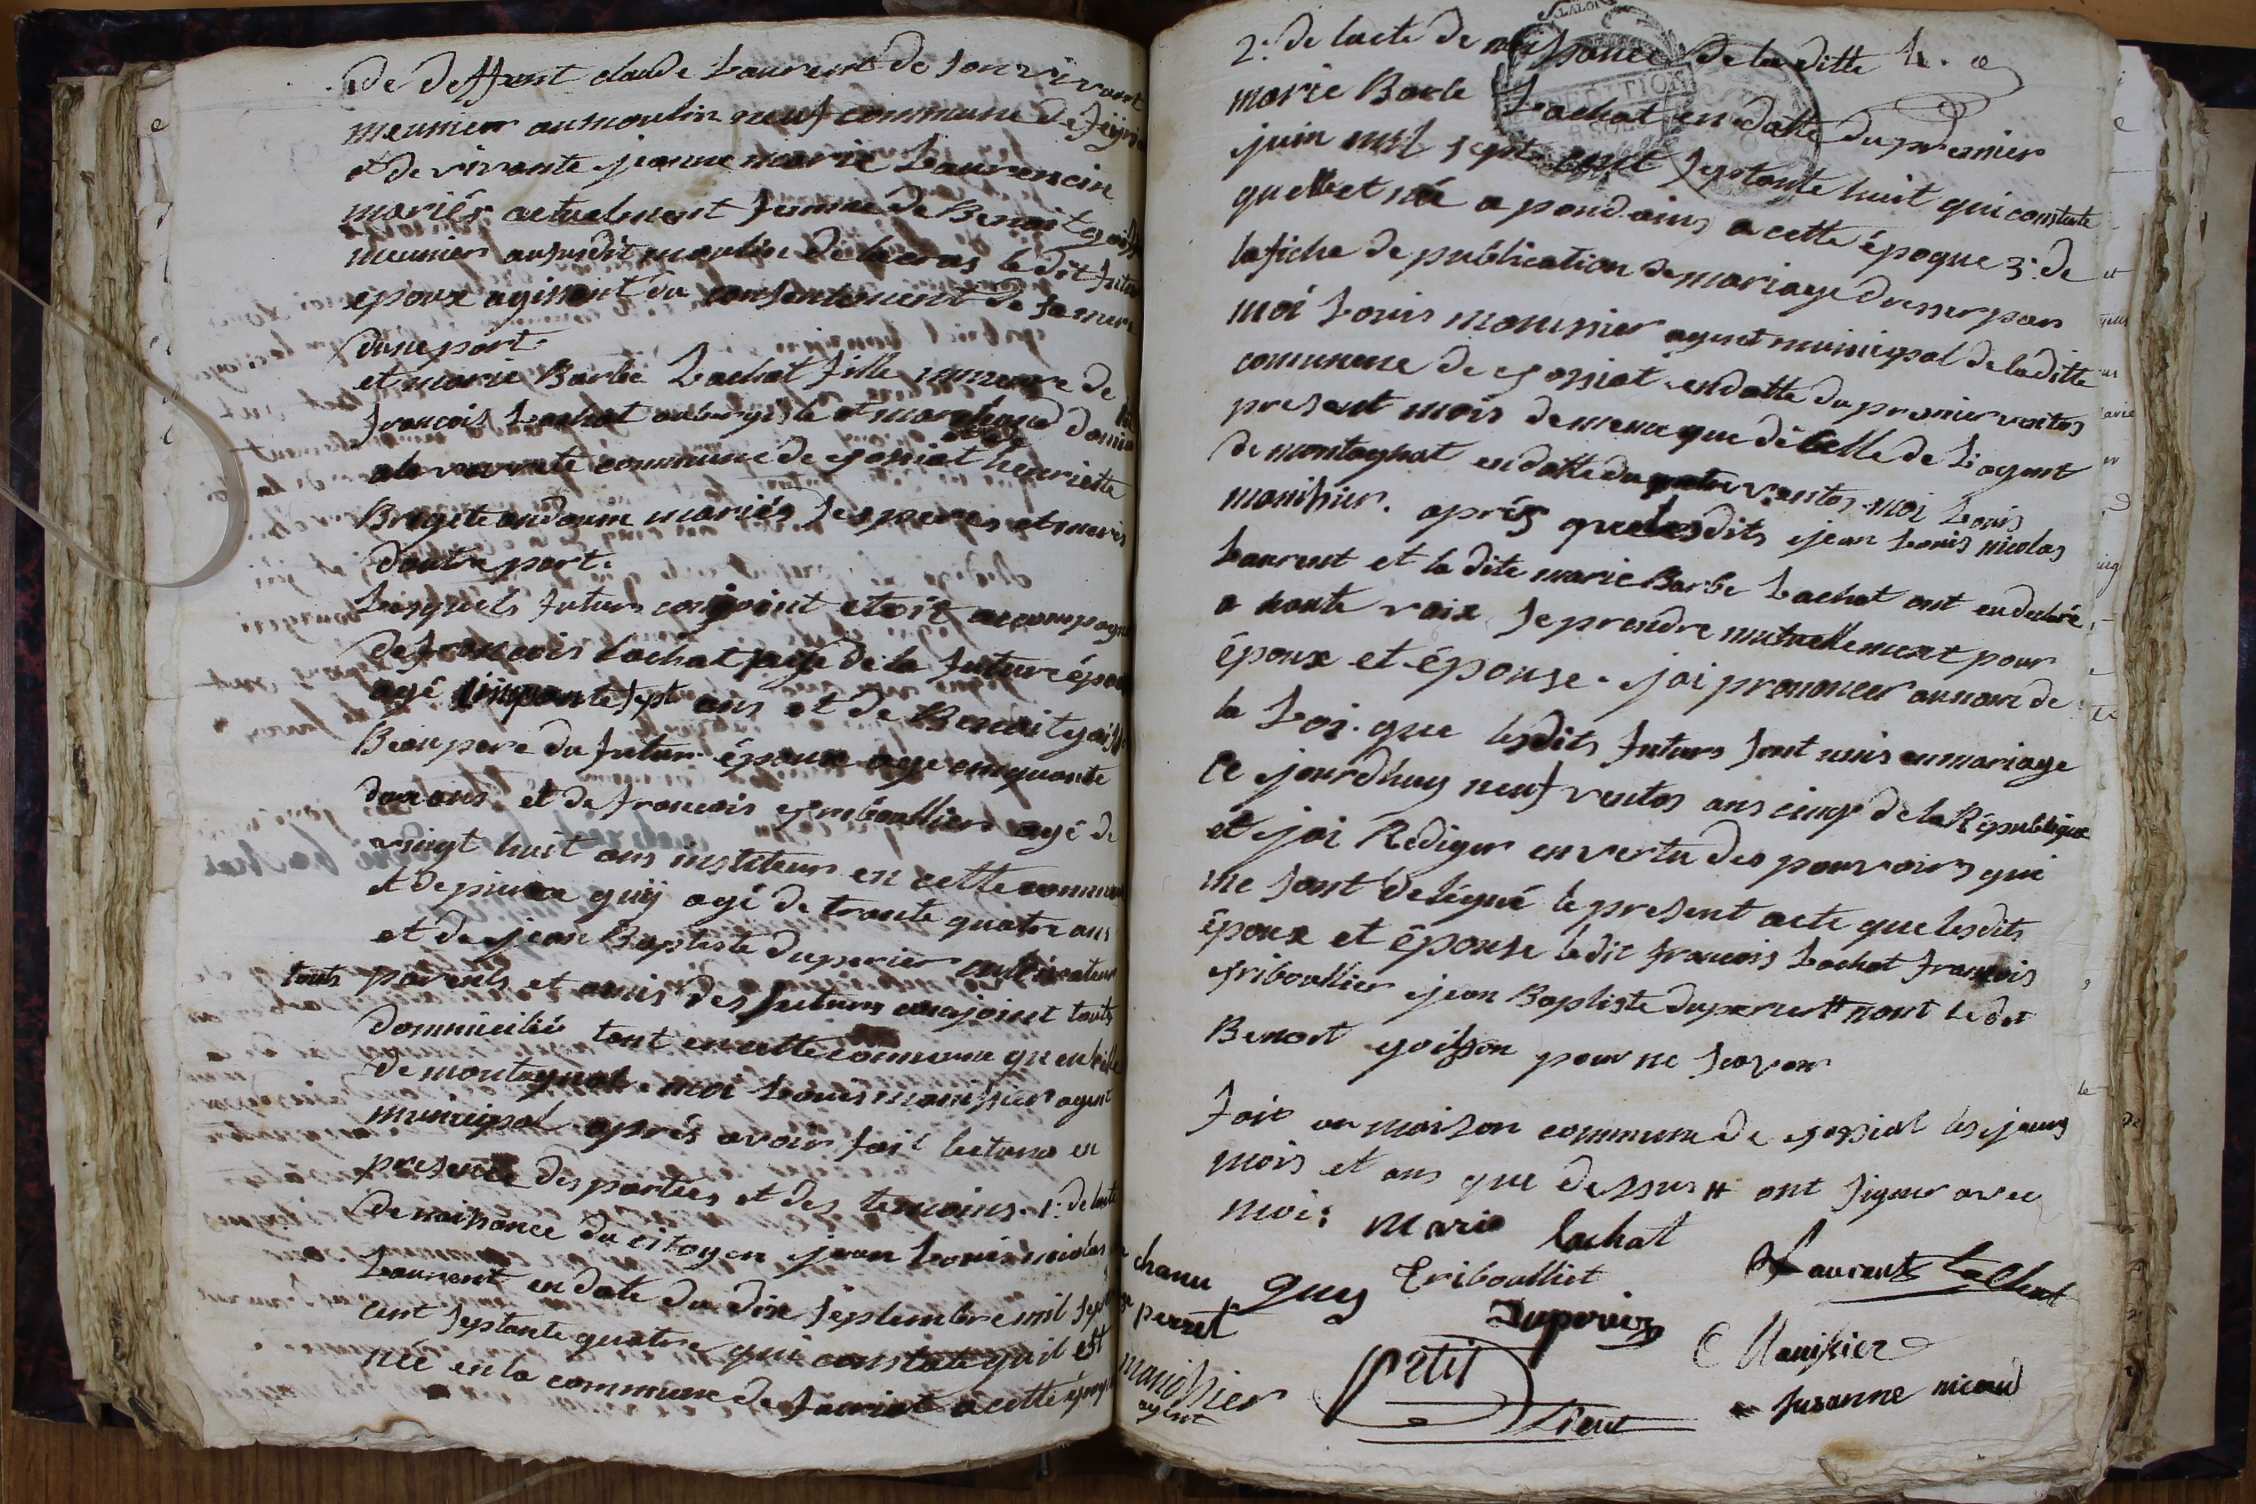 de deffunt claude Laurent de son vivant
meunier au moulin neuf commune de
et de vivante jeanne marie Laurencin
mariés actuelment femme de Benoit
meunier au susdit moulin de la cras le dit futur
epoux agissant du consentement de sa mere
d'une part.
et marie Barbe Lachat fille mineure de
francois Lachat aubergiste et marchand
a la commune de jossiat henriette
Brigitte mariés ses peres et meres
d'autre part.
Lesquels futurs conjoint etoit accompagné
de francois Lachat pere de la future épouse
agé cinquante sept ans et de Benoit
Beau pere du futur époux agé cinquante
deux ans et de francois triboullier agé de
vingt huit ans instituteur en cette commune
et de pierre guy agé de trante quatre ans
et de jean Baptiste duperier cultivateur
touts parents et amis des futurs conjoint touts
dommicilié tant en cette commune qu'en celle
de montagnat. moi Louis monissier agent
municipal après avoir fait lecture en
presence des parties et des temoins. 1.° de l'acte
de naissance du citoyen jean Louis nicolas
Laurent en date du dix septembre mil sept
cent septante quatre qui constate qu'il est
née en la commune de a cette époque
2.° de l'acte de naissance de la ditte
marie Barbe Lachat en datte du premier
juin mil sept cent septante huit qui constate
quelle et né a pondains a cette époque 3.° de
lafiche de publication de mariage dresser par
moi Louis monissier agent municipal de laditte
commune de jossiat en datte du premier ventos
present mois de meme que de celle de L'agent
de montagnat en datte du quatre ventos. moi Louis
monissier. après que lesdits jean Louis nicolas
Laurent et la dite marie Barbe Lachat ont eu declaré
a haute voix se prendre mutuellement pour
époux et épouse. j'ai prononcer au nom de
la Loi. que lesdits futurs sont unis en mariage
Ce jourd'huy neuf ventos ans cinq de la République
et j'ai Rediger en vertu des pouvoirs qui
me sont delégué le present acte que lesdits
époux et épouse ledit francois Lachat francois
triboullier jean Baptiste duperier # nont le dit
Benoit goisson pour ne scavoir
fait en maison commune de jossiat les jours
mois et ans que dessus # ont signer avec
moi: marie lachat
chanu guy Triboulliet Laurent Lachat
perret Duperier
monissier Petit Monissier
agent Susanne nicoud